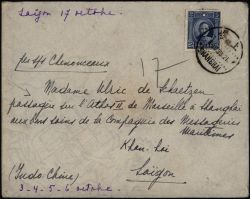 Saïgon 17 octobre.
per s/s Chenonceaux
17
Madame Ulric de Schaetzen
passagère sur l'Athos II de Marseille à Shanghai
aux bons soins de la Compagnie des Messageries
Maritimes
Khan-Hoi
Saïgon
(Indo Chine)
3-4-5-6 octobre.